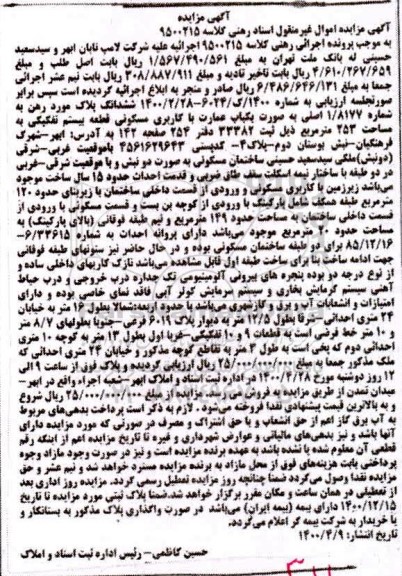 آگهی مزایده
آگهی مزایده اموال غیرمنقول اسناد رهنی کلاسه ۹۵۰۰۲۱۵
به موجب پرونده اجرائی رهنی کلاسه ۹۵۰۰۲۱۵ اجرائیه علیه شرکت لامپ تابان ابهر و سیدسعید
حسینی له بانک ملت تهران به مبلغ ۱/۵۶۷/۴۹۰/۵۶۱ ریال بابت اصل طلب و مبلغ
۴/۶۱۰/۲۶۷/۶۵۹ ریال بابت تاخیر تادیه و مبلغ ۳۰۸/۸۸۷/۹۱۱ ریال بابت نیم عشر اجرائی
جمعا به مبلغ ۶/۴۸۶/۶۴۶/۱۳۱ ریال صادر و منجر به ابلاغ اجرائیه گردیده است سپس برابر
صورتجلسه ارزیابی به شماره ۱۴۰۰/ک/۶۰۲۴-۱۴۰۰/۲/۲۸ ششدانگ پلاک مورد رهن به
شماره ۱/۸۱۷۷ اصلی به صورت یکباب عمارت با کاربری مسکونی قطعه بیستم تفکیکی به
مساحت ۲۵۳ مترمربع ذیل ثبت ۳۳۳۸۲ دفتر ۲۵۴ صفحه ۱۴۲ به آدرس: ابهر-شهرک
فرهنگیان-نبش بوستان دوم-پلاک۴- کدپستی ۴۵۶۱۶۲۹۶۴۳ باموقعیت غربی-شرقی
(دونبش)ملکی سیدسعید حسینی ساختمان مسکونی به صورت دو نبش و با موقعیت شرقی-غربی
در دو طبقه با ساختار نیمه اسکلت سقف طاق ضربی و قدمت احداث حدود ۱۵ سال ساخت موجود
می‌باشد زیرزمین با کاربری مسکونی و ورودی از قسمت داخلی ساختمان با زیربنای حدود ۱۲۰
مترمربع طبقه همکف شامل پارکینگ با ورودی از کوچه بن بست و قسمت مسکونی با ورودی از
قسمت داخلی ساختمان به مساحت حدود ۱۴۹ مترمربع و نیم طبقه فوقانی (بالای پارکینگ) به
مساحت حدود ۲۰ مترمربع موجود می‌باشد دارای پروانه احداث به شماره ۶/۳۳۶۱۵-
۸۵/۱۲/۱۶ برای دو طبقه ساختمان مسکونی بوده و در حال حاضر نیز ستونهای طبقه فوقانی
جهت ادامه ساخت بنا برای ساخت طبقه اول قابل مشاهده می‌باشد نازک کاریهای داخلی ساده و
از نوع درجه دو بوده پنجره های بیرونی آلومینیومی تک جداره درب خروجی و درب حیاط
آهنی سیستم گرمایش بخاری و سیستم سرمایش کولر آبی فاقد نمای خاصی بوده و دارای
امتیازات و انشعابات آب و برق و گازشهری می‌باشد با حدود اربعه:شمالا بطول ۱۶ متر به خیابان
۲۴ متری احداثی-شرقا بطول ۱۲/۵ متر به دیوار پلاک ۶۰۱۹ فرعی-جنوبا بطولهای ۸/۷ متر
و ۱۰ متر خط فرضی است به قطعات ۹ و ۱۰ تفکیکی-غربا اول بطول ۱۳ متر به کوچه ۱۰ متری
احداثی دوم که پخی است به طول ۳ متر به تقاطع کوچه مذکور و خیابان ۲۴ متری احداثی که
ملک مذکور جمعا به مبلغ ۲۵/۰۰۰/۰۰۰/۰۰۰ ریال ارزیابی گردیده و پلاک فوق از ساعت ۹ الی
۱۲ روز دوشنبه مورخ ۱۴۰۰/۴/۲۸ در اداره ثبت اسناد و املاک ابهر-شعبه اجراء واقع در ابهر-
میدان تمدن از طریق مزایده به فروش می‌رسد مزایده از مبلغ ۲۵/۰۰۰/۰۰۰/۰۰۰ ریال شروع
و به بالاترین قیمت پیشنهادی نقدا فروخته می‌شود. لازم به ذکر است پرداخت بدهی‌های مربوط
به آب برق گاز اعم از حق انشعاب و یا حق اشتراک و مصرف در صورتی که مورد مزایده دارای
آنها باشد و نیز بدهی‌های مالیاتی و عوارض شهرداری و غیره تا تاریخ مزایده اعم از اینکه رقم
قطعی آن معلوم شده یا نشده باشد به عهده برنده مزایده است و نیز در صورت وجود مازاد وجوه
پرداختی بابت هزینه‌های فوق از محل مازاد به برنده مزایده مسترد خواهد شد و نیم عشر و حق
مزایده نقدا وصول می‌گردد ضمنا چنانچه روز مزایده تعطیل رسمی گردد، مزایده روز اداری بعد
از تعطیلی در همان ساعت و مکان مقرر برگزار خواهد شد.ضمنا پلاک ثبتی مورد مزایده تا تاریخ
۱۴۰۰/۱۲/۱۵ دارای بیمه (بیمه ایران) می‌باشد در صورت واگذاری پلاک مذکور به بستانکار و
یا خریدار به شرکت بیمه گر اعلام می‌گردد.
تاریخ انتشار: ۱۴۰۰/۴/۹
حسین کاظمی- رئیس اداره ثبت اسناد و املاک